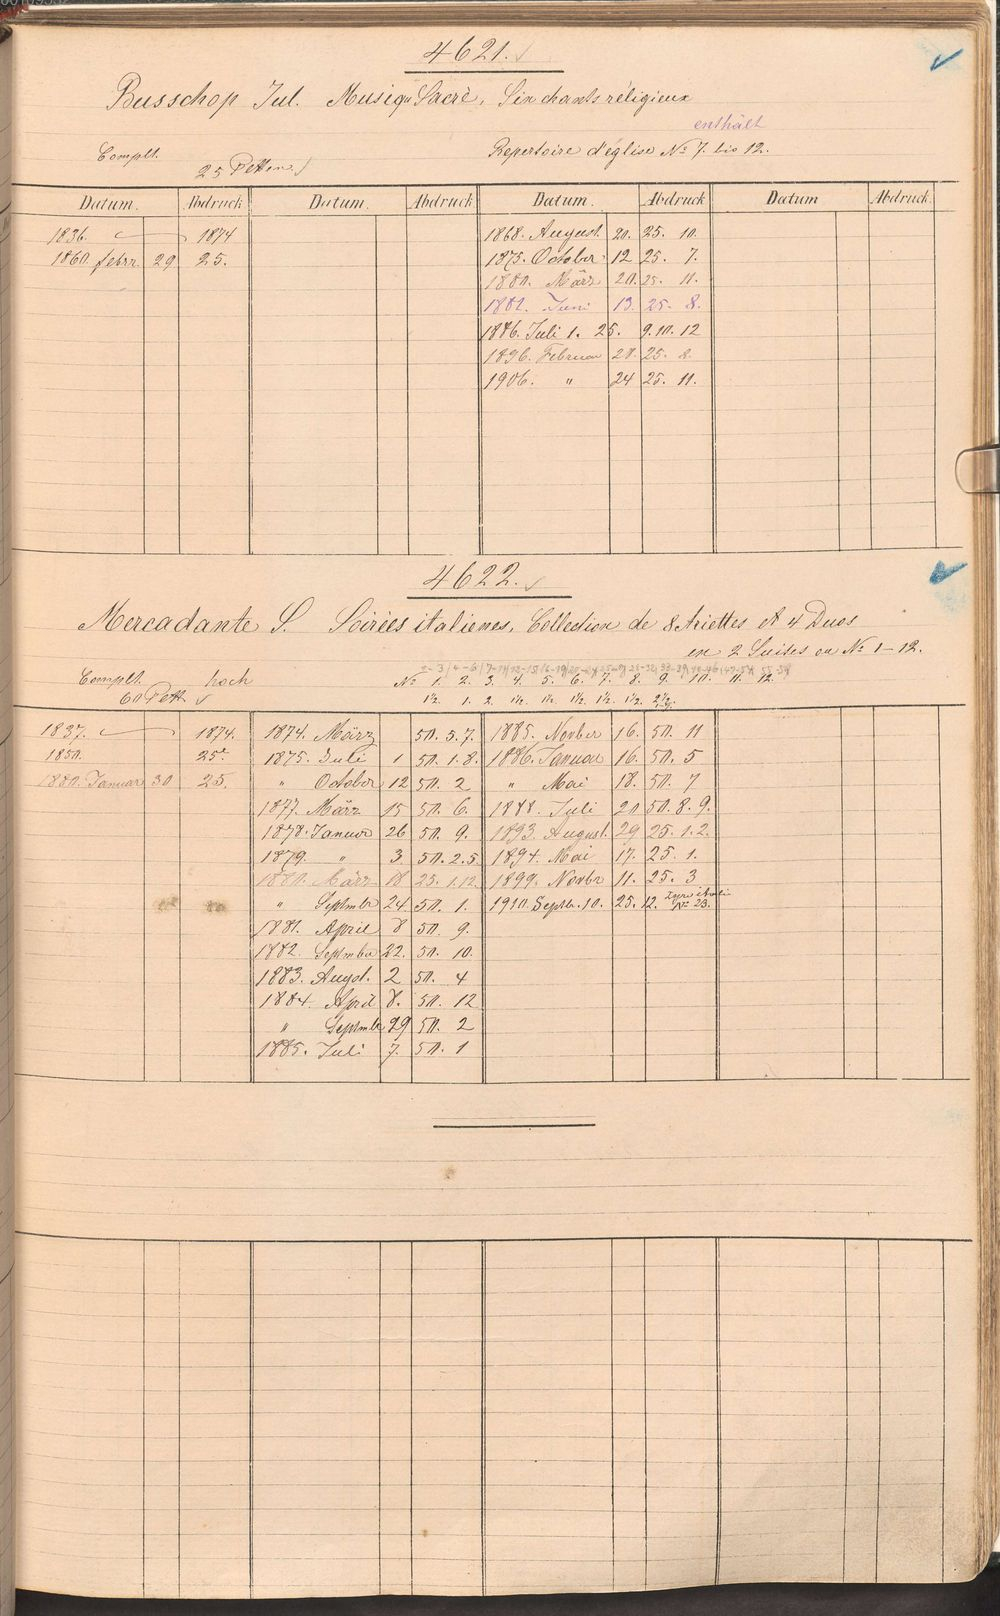 4621.
Busschop Jul. Musiqu Sacrè, Six chants réligieux
enthält
Complt. Repertoire d'église No 7. bis 12.
25 Platten
Datum. Abdruck Datum. Abdruck Datum. Abdruck Datum Abdruck
1836. 1874 1868. August. 20. 25. 10.
1860. febrr. 29 25. 1875. October 12 25. 7.
1880. März 20. 25. 11.
1882. Juni 13. 25. 8.
1886. Juli 1. 25. 9. 10. 12
1896. Februar 28. 25. 8.
1906. " 24 25. 11.
4622.
Mercadante S. Soirées italienes, Collection de 8 Ariettes et 4 Duos
en 2 Suites ou No 1-12.
Complt. hoch No 1. 2. 3. 4. 5. 6. 7. 8. 9. 10. 11. 12.
60 Platt. 1½. 1. 2. 1½. 1½. 1½. 1½. 1½. 2½.
1837. 1874. 1874. März 50. 5. 7. 1885. Novber 16. 50. 11
1850. 25. 1875. Juli 1 50. 1. 8. 1886. Januar 16. 50. 5
1880. Januar 30 25. " October 12 50. 2 " Mai 18. 50. 7
1877. März 15 50. 6. 1888. Juli 20 50. 8. 9.
1878. Januar 26 50. 9. 1893. August. 29 25. 1. 2.
1879. " 3 50. 2. 5. 1894. Mai 17. 25. 1.
1880. März 18 25. 1. 12. 1899. Novbr 11. 25. 3
" Septmber 24 50. 1. 1910. Septbr. 10. 25. 12. No 23.
1881. April 8 50. 9.
1882. Septmber 22. 50. 10.
1883. Augst. 2 50. 4
1884. April 8. 50. 12
" Septmbr 29 50. 2
1885. Juli 7. 50. 1